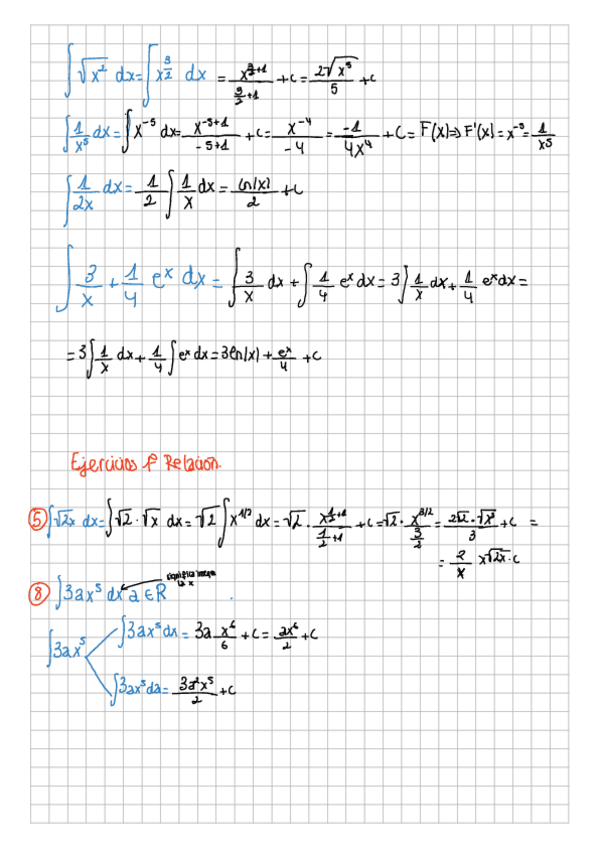 ∫ √x² dx = ∫ x^(3/2) dx = x^(3/2+1) / (3/2+1) + c = 2√x⁵ / 5 + c
∫ 1/x⁵ dx = ∫ x⁻⁵ dx = x^(-5+1) / (-5+1) + c = x⁻⁴ / -4 = -1 / 4x⁴ + C = F(x) ⇒ F'(x) = x⁻⁵ = 1/x⁵
∫ 1/2x dx = 1/2 ∫ 1/x dx = ln|x| / 2 + c
∫ 3/x + 1/4 eˣ dx = ∫ 3/x dx + ∫ 1/4 eˣ dx = 3∫ 1/x dx + 1/4 eˣ dx =
= 3∫ 1/x dx + 1/4 ∫ eˣ dx = 3ln|x| + eˣ/4 + c
Ejercicios Relación.
5 ∫ √2x dx = ∫ √2 · √x dx = √2 ∫ x^(1/2) dx = √2 · x^(1/2+1) / (1/2+1) + c = √2 · x^(3/2) / (3/2) = 2√2 · √x³ / 3 + c =
= 2/x x√2x · c
8 ∫ 3ax⁵ dx a ∈ R
∫ 3ax⁵
∫ 3ax⁵ dx = 3a x⁶/6 + c = ax⁶/2 + c
∫ 3ax⁵ da = 3a²x⁵ / 2 + c